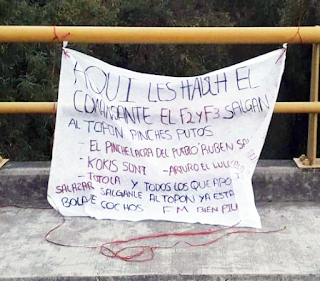 AQUI LES HABLA EL
COMANDANTE EL F2 Y F3 SALGAN
AL TOPON PINCHES PUTOS
- EL PINCHE LACRA DEL PUEBLO RUBEN
- KOKIS SONI - ARTURO EL
- TOTOLA
SALAZAR Y TODOS LOS QUE APO
SALGANLE AL TOPON YA ESTA
BOLA DE COCHOS F M BIEN